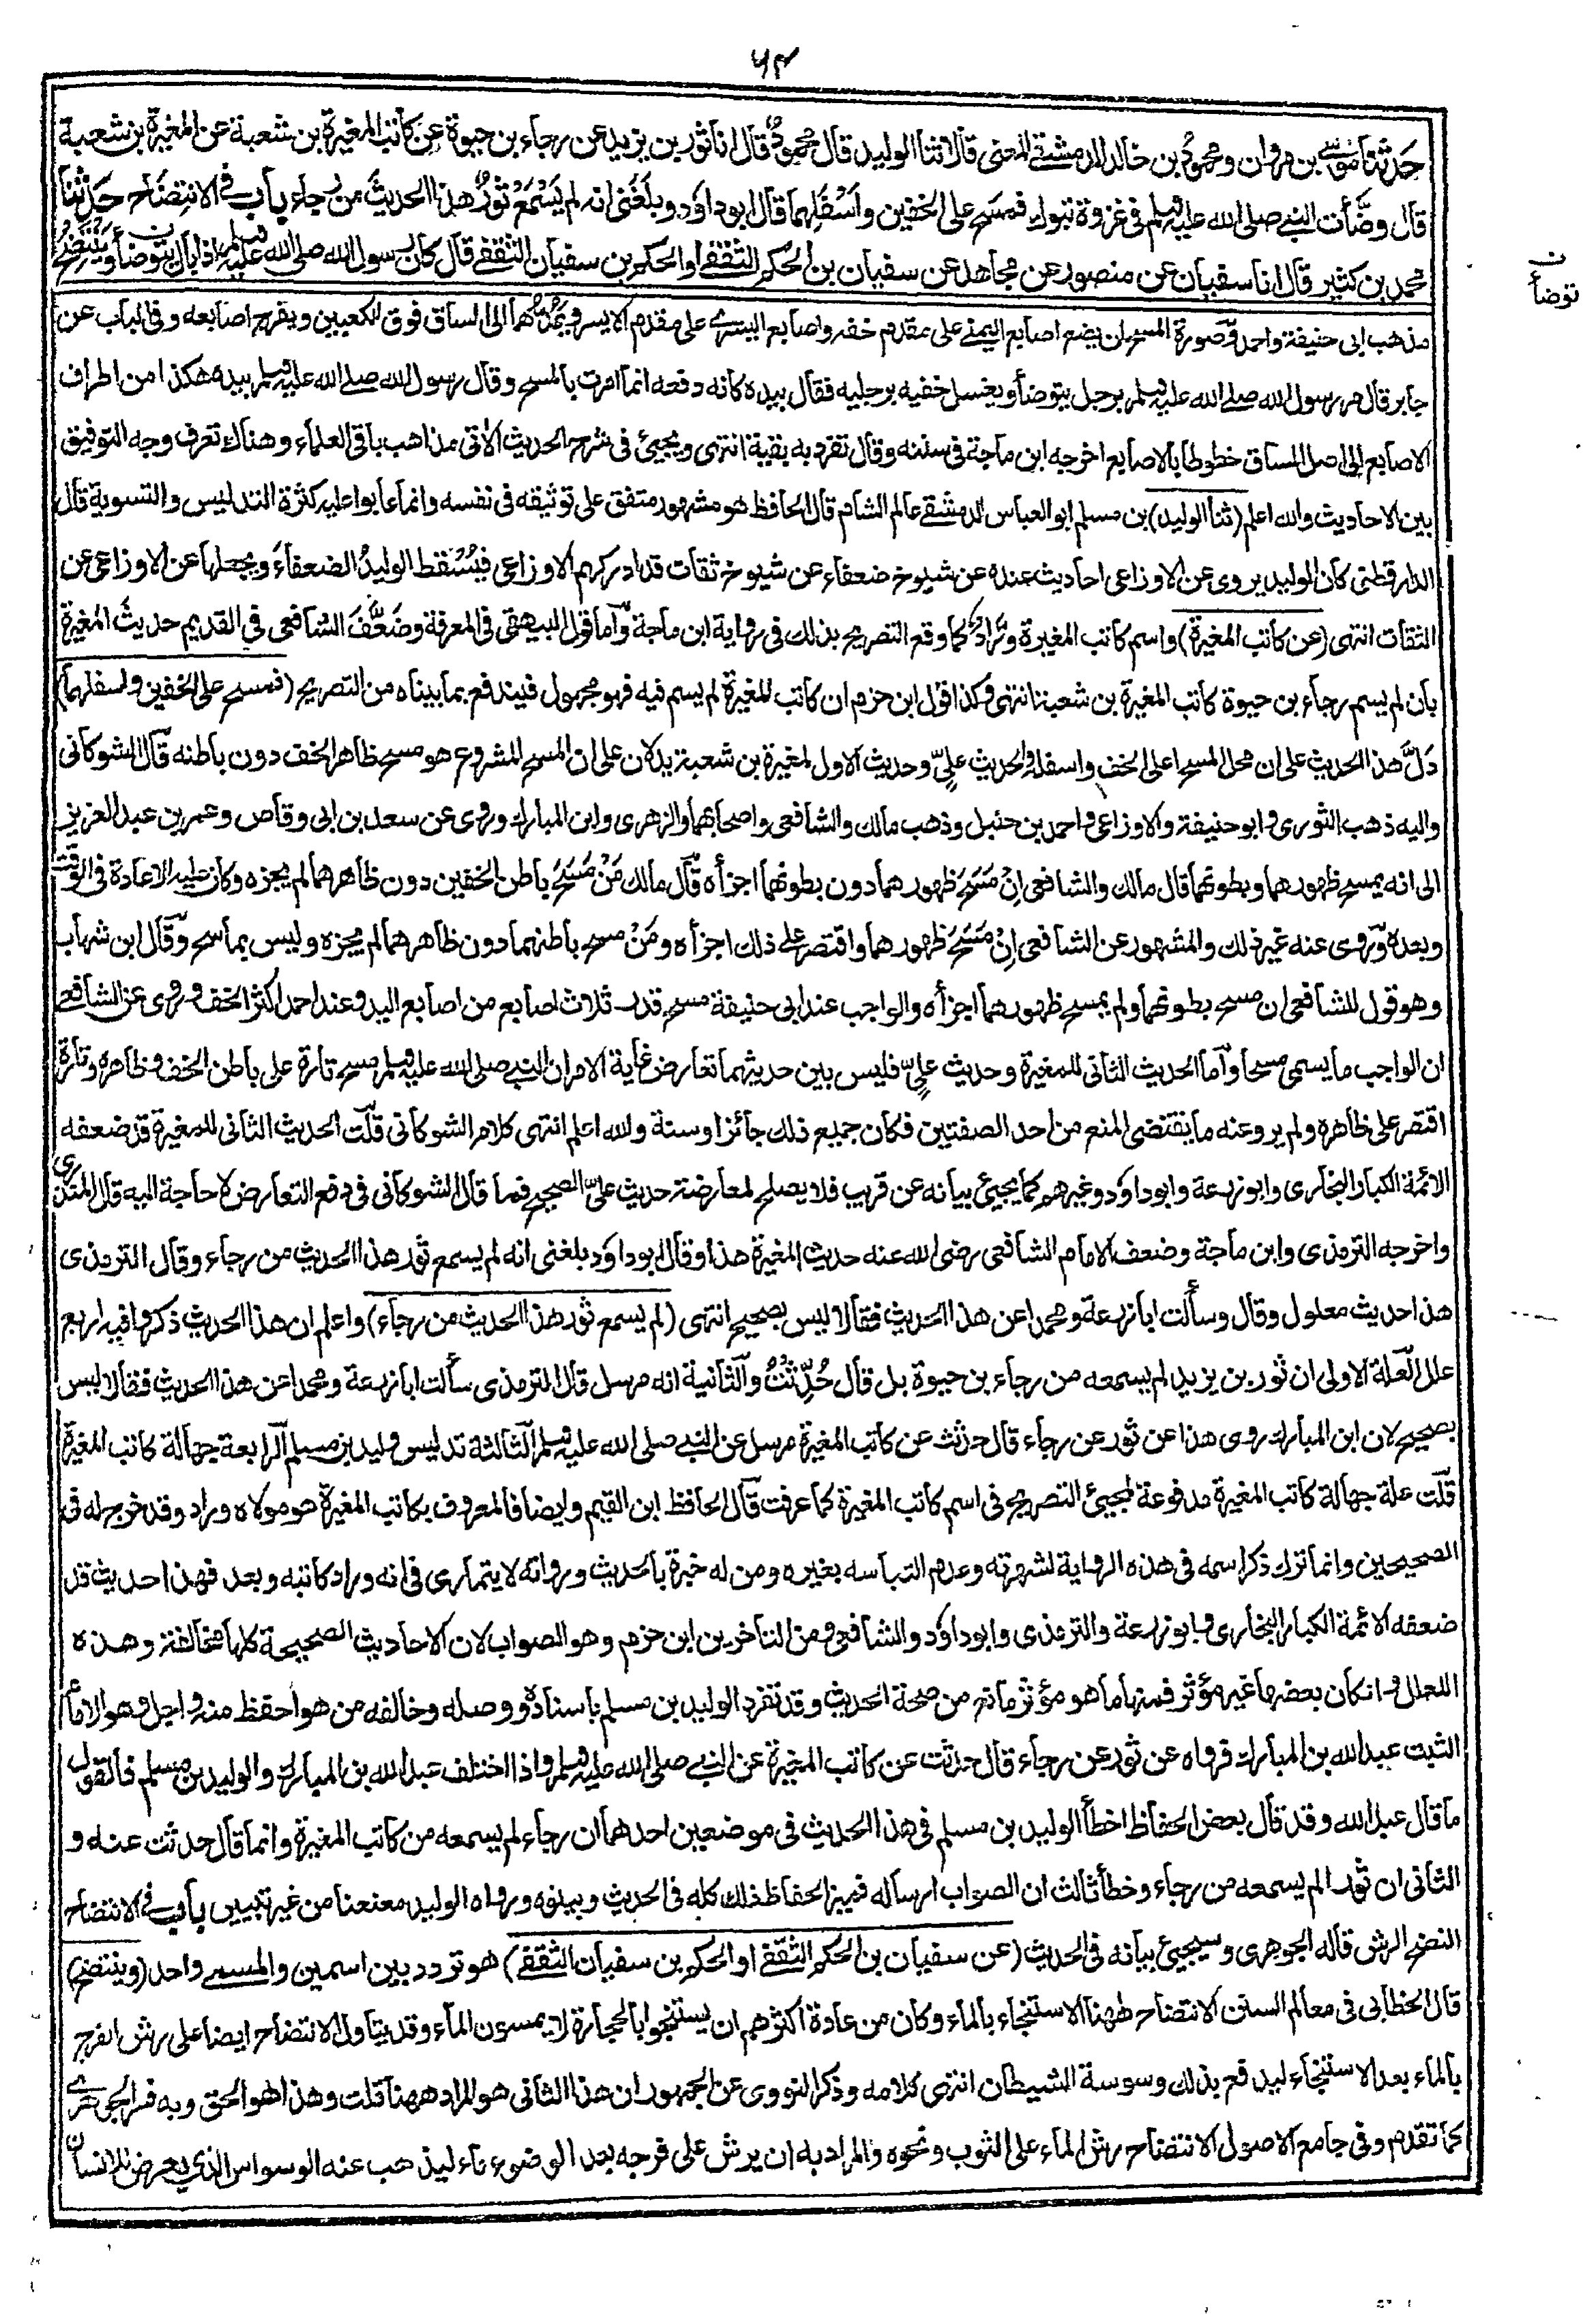 ٦٤
حدثنا موسى بن مروان ومحمود بن خالد الدمشقي المعنى قالا ثنا الوليد قال محمود قال انا ثور بن يزيد عن رجاء بن حيوة عن كاتب المغيرة بن شعبة عن المغيرة بن شعبة
قال وضّأت النبي صلى الله عليه وسلم في غزوة تبوك فمسح على الخفين واسفلهما قال ابو داؤد وبلغني انه لم يَسْمَعْ ثورٌ هذا الحديثَ من رجاء باب في الانتضاح حدثنا
محمد بن كثير قال انا سفيان عن منصور عن مجاهد عن سفيان بن الحكم الثقفي او الحكم بن سفيان الثقفي قال كان رسول الله صلى الله عليه وسلم اذا بال يتوضأ وينتضح
ن توضأ
مذهب ابى حنيفة واحمد وصورة المسح ان يضع اصابع اليمنى على مقدم خفه واصابع اليسرى على مقدم الايسر ويمدهما الى الساق فوق الكعبين ويفرج اصابعه وفى الباب عن
جابر قال مر رسول الله صلى الله عليه وسلم برجل يتوضأ ويغسل خفيه برجليه فقال بيده كانه دفعه انما امرت بالمسح وقال رسول الله صلى الله عليه وسلم بيده هكذا من اطراف
الاصابع الى اصل الساق خطوطا بالاصابع اخرجه ابن ماجة فى سننه وقال تفرد به بقية انتهى ويجيئ فى شرح الحديث الآتى مذاهب باقى العلماء وهناك تعرف وجه التوفيق
بين الاحاديث والله اعلم (ثنا الوليد) بن مسلم ابو العباس الدمشقى عالم الشام قال الحافظ هو مشهور متفق على توثيقه فى نفسه وانما عابوا عليه كثرة التدليس والتسوية قال
الدارقطنى كان الوليد يروى عن الاوزاعى احاديث عنده عن شيوخ ضعفاء عن شيوخ ثقات قد ادركهم الاوزاعى فيُسْقط الوليدُ الضعفاءَ ويجعلها عن الاوزاعى عن
الثقات انتهى (عن كاتب المغيرة) واسم كاتب المغيرة ورّاد كما وقع التصريح بذلك فى رواية ابن ماجة وأما قول البيهقى فى المعرفة وضَعَّفَ الشافعى فى القديم حديثَ المغيرة
بان لم يسم رجاء بن حيوة كاتب المغيرة بن شعبة انتهى وكذا قول ابن حزم ان كاتب المغيرة لم يسم فيه فهو مجهول فيندفع بما بيناه من التصريح (فمسح على الخفين واسفلهما)
دَلَّ هذا الحديث على ان محل المسح اعلى الخف واسفله والحديث علىّ وحديث الاول لمغيرة بن شعبة يدلان على ان المسح المشروع هو مسح ظاهر الخف دون باطنه قال الشوكانى
واليه ذهب الثورى وابو حنيفة والاوزاعى واحمد بن حنبل وذهب مالك والشافعى واصحابهما والزهرى وابن المبارك وروى عن سعد بن ابى وقاص وعمر بن عبد العزيز
الى انه يمسح ظهورهما وبطونهما قال مالك والشافعى إنْ مَسَحَ ظهورهما دون بطونهما اجزأه قال مالك مَنْ مَسَحَ باطن الخفين دون ظاهرهما لم يجزه وكان عليه الاعادة فى الوقت
وبعده وروى عنه غير ذلك والمشهور عن الشافعى إنْ مَسَحَ ظهورهما واقتصر على ذلك اجزأه ومَنْ مسح باطنهما دون ظاهرهما لم يجزه وليس بماسح وقال ابن شهاب
وهو قول للشافعى ان مسح بطونهما ولم يمسح ظهورهما اجزأه والواجب عند ابى حنيفة مسح قدر ثلاث اصابع من اصابع اليد وعند احمد اكثر الخف وروى عن الشافعى
ان الواجب ما يسمى مسحا وأما الحديث الثانى للمغيرة وحديث علىّ فليس بين حديثهما تعارض غاية الامر ان النبى صلى الله عليه وسلم مسح تارة على باطن الخف وظاهره وتارة
اقتصر على ظاهره ولم يرو عنه ما يقتضى المنع من احد الصفتين فكان جميع ذلك جائزا وسنة والله اعلم انتهى كلام الشوكانى قلت الحديث الثانى للمغيرة قد ضعفه
الائمة الكبار البخارى وابو زرعة وابو داؤد وغيرهم كما يجيئ بيانه عن قريب فلا يصلح لمعارضة حديث علىّ الصحيح فما قال الشوكانى فى دفع التعارض لا حاجة اليه قال المنذرى
واخرجه الترمذى وابن ماجة وضعف الامام الشافعى رضى الله عنه حديث المغيرة هذا وقال ابو داؤد بلغنى انه لم يسمع ثور هذا الحديث من رجاء وقال الترمذى
هذا حديث معلول وقال وسألت ابا زرعة ومحمدا عن هذا الحديث فقالا ليس بصحيح انتهى (لم يسمع ثور هذا الحديث من رجاء) واعلم ان هذا الحديث ذكروا فيه اربع
علل العلة الاولى ان ثور بن يزيد لم يسمعه من رجاء بن حيوة بل قال حُدِّثْتُ والثانية انه مرسل قال الترمذى سألت ابا زرعة ومحمدا عن هذا الحديث فقالا ليس
بصحيح لان ابن المبارك روى هذا عن ثور عن رجاء قال حدثت عن كاتب المغيرة مرسل عن النبى صلى الله عليه وسلم الثالثة تدليس وليد بن مسلم الرابعة جهالة كاتب المغيرة
قلت علة جهالة كاتب المغيرة مدفوعة لمجيئ التصريح فى اسم كاتب المغيرة كما عرفت قال الحافظ ابن القيم وايضا فالمعروف بكاتب المغيرة هو مولاه وراد وقد خرج له فى
الصحيحين وانما ترك ذكر اسمه فى هذه الرواية لشهرته وعدم التباسه بغيره ومن له خبرة بالحديث ورواته لا يتمارى فى انه وراد كاتبه وبعد فهذا حديث قد
ضعفه الائمة الكبار البخارى وابو زرعة والترمذى وابو داؤد والشافعى ومن المتأخرين ابن حزم وهو الصواب لان الاحاديث الصحيحة كلها تخالفه وهذه
العلل وان كان بعضها غير مؤثر فمنها ما هو مؤثر مانع من صحة الحديث وقد تفرد الوليد بن مسلم باسناده ووصله وخالفه من هو احفظ منه واجل وهو الامام
الثبت عبد الله بن المبارك فرواه عن ثور عن رجاء قال حدثت عن كاتب المغيرة عن النبى صلى الله عليه وسلم واذا اختلف عبد الله بن المبارك والوليد بن مسلم فالقول
ما قال عبد الله وقد قال بعض الحفاظ اخطأ الوليد بن مسلم فى هذا الحديث فى موضعين احدهما ان رجاء لم يسمعه من كاتب المغيرة وانما قال حدثت عنه و
الثانى ان ثورا لم يسمعه من رجاء وخطأ ثالث ان الصواب ارساله فميز الحفاظ ذلك كله فى الحديث وبينوه ورواه الوليد معنعنا من غير تبيين باب فى الانتضاح
النضح الرش قاله الجوهرى وسيجيئ بيانه فى الحديث (عن سفيان بن الحكم الثقفى او الحكم بن سفيان الثقفى) هو تردد بين اسمين والمسمى واحد (وينتضح)
قال الخطابى فى معالم السنن الانتضاح ههنا الاستنجاء بالماء وكان من عادة اكثرهم ان يستنجوا بالحجارة لا يمسون الماء وقد يتاول الانتضاح ايضا على رش الفرج
بالماء بعد الاستنجاء ليدفع بذلك وسوسة الشيطان انتهى كلامه وذكر النووى عن الجمهور ان هذا الثانى هو المراد ههنا قلت وهذا هو الحق وبه فسر الجوهرى
كما تقدم وفى جامع الاصول الانتضاح رش الماء على الثوب ونحوه والمراد به ان يرش على فرجه بعد الوضوء ماء ليذهب عنه الوسواس الذى يعرض للانسان